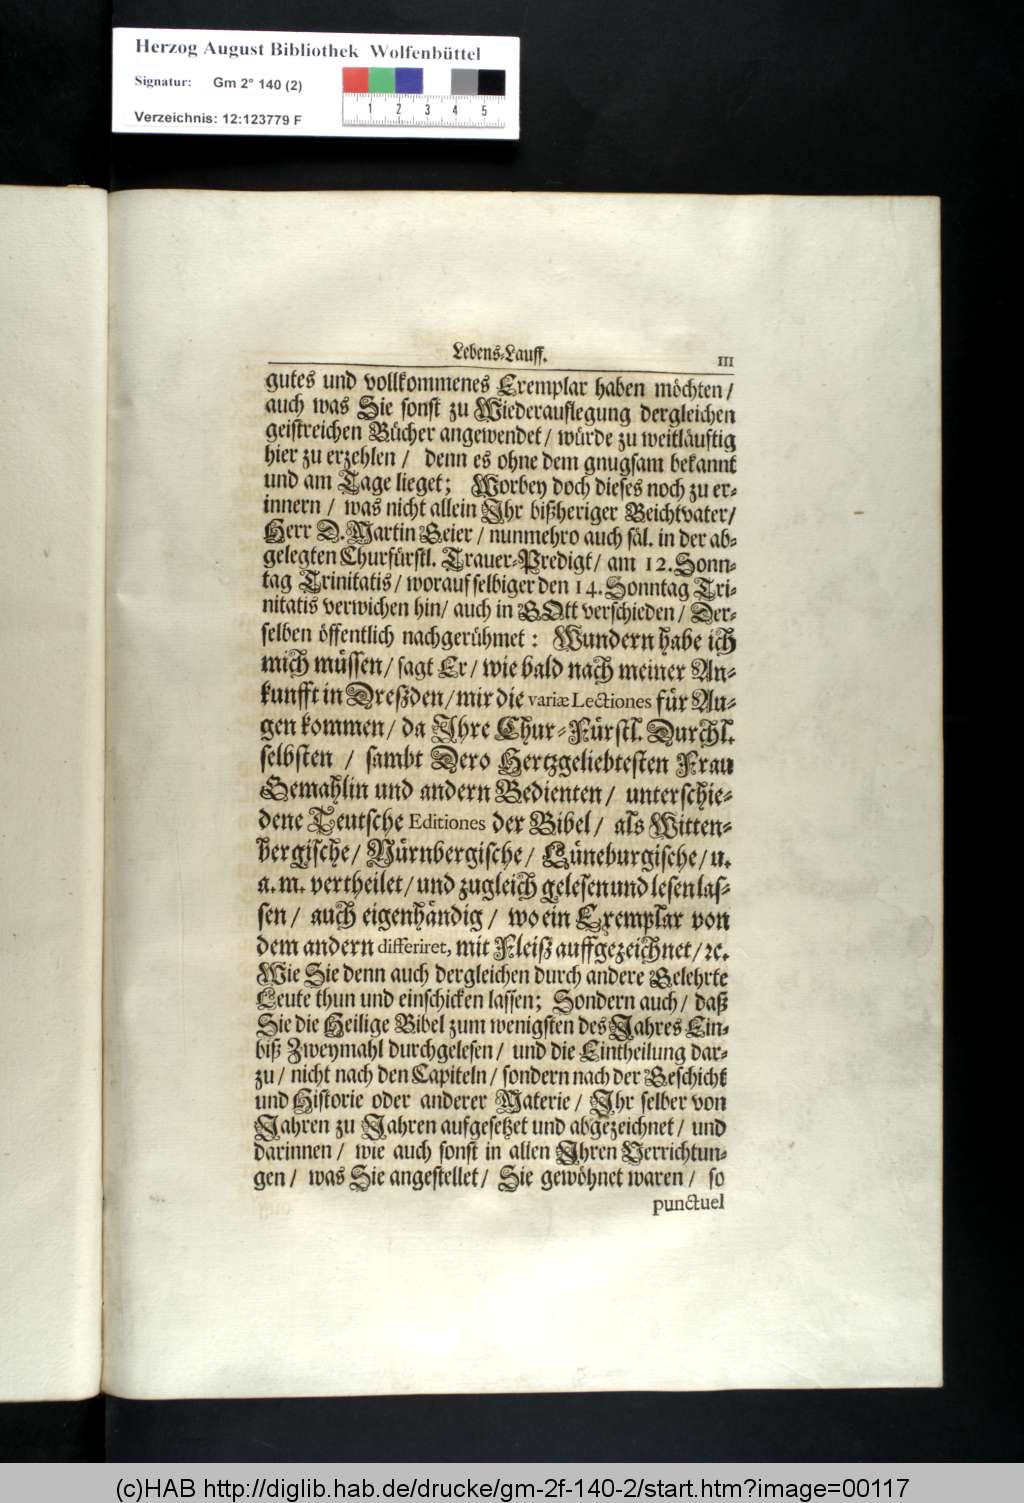 Herzog August Bibliothek Wolfenbüttel
Signatur: Gm 2° 140 (2)
Verzeichnis: 12:123779 F
1 2 3 4 5
Lebens-Lauff. 111
gutes und vollkommenes Exemplar haben möchten/
auch was Sie sonst zu Wiederauflegung dergleichen
geistreichen Bücher angewendet/ würde zu weitläuftig
hier zu erzehlen/ denn es ohne dem gnugsam bekannt
und am Tage lieget; Worbey doch dieses noch zu er-
innern/ was nicht allein Ihr bißheriger Beichtvater/
Herr D. Martin Geier/ nunmehro auch säl. in der ab-
gelegten Churfürstl. Trauer-Predigt/ am 12. Sonn-
tag Trinitatis/ worauf selbiger den 14. Sonntag Tri-
nitatis verwichen hin/ auch in GOtt verschieden/ Der-
selben öffentlich nachgerühmet: Wundern habe ich
mich müssen/ sagt Er/ wie bald nach meiner An-
kunfft in Dreßden/ mir die variæ Lectiones für Au-
gen kommen/ da Ihre Chur-Fürstl. Durchl.
selbsten / sambt Dero Hertzgeliebtesten Frau
Gemahlin und andern Bedienten/ unterschie-
dene Teutsche Editiones der Bibel/ als Witten-
bergische/ Nürnbergische/ Lüneburgische/ u.
a. m. vertheilet/ und zugleich gelesen und lesen las-
sen/ auch eigenhändig/ wo ein Exemplar von
dem andern differiret, mit Fleiß auffgezeichnet/ ꝛc.
Wie Sie denn auch dergleichen durch andere Gelehrte
Leute thun und einschicken lassen; Sondern auch/ daß
Sie die Heilige Bibel zum wenigsten des Jahres Ein-
biß Zweymahl durchgelesen/ und die Eintheilung dar-
zu/ nicht nach den Capiteln/ sondern nach der Geschicht
und Historie oder anderer Materie/ Ihr selber von
Jahren zu Jahren aufgesetzet und abgezeichnet/ und
darinnen/ wie auch sonst in allen Ihren Verrichtun-
gen/ was Sie angestellet/ Sie gewöhnet waren/ so
punctuel
(c)HAB http://diglib.hab.de/drucke/gm-2f-140-2/start.htm?image=00117